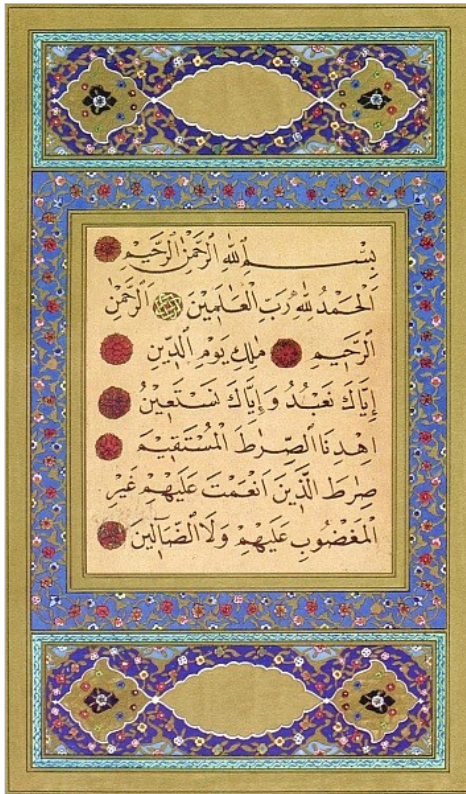 بِسْمِ اللهِ الرَّحْمٰنِ الرَّحِيمِ
اَلْحَمْدُ لِلّٰهِ رَبِّ الْعَالَمِينَ اَلرَّحْمٰنِ
الرَّحِيمِ مٰلِكِ يَوْمِ الدِّينِ
اِيَّاكَ نَعْبُدُ وَاِيَّاكَ نَسْتَعِينُ
اِهْدِنَا الصِّرَاطَ الْمُسْتَقِيمَ
صِرَاطَ الَّذِينَ اَنْعَمْتَ عَلَيْهِمْ غَيْرِ
الْمَغْضُوبِ عَلَيْهِمْ وَلَا الضَّٓالِّينَ